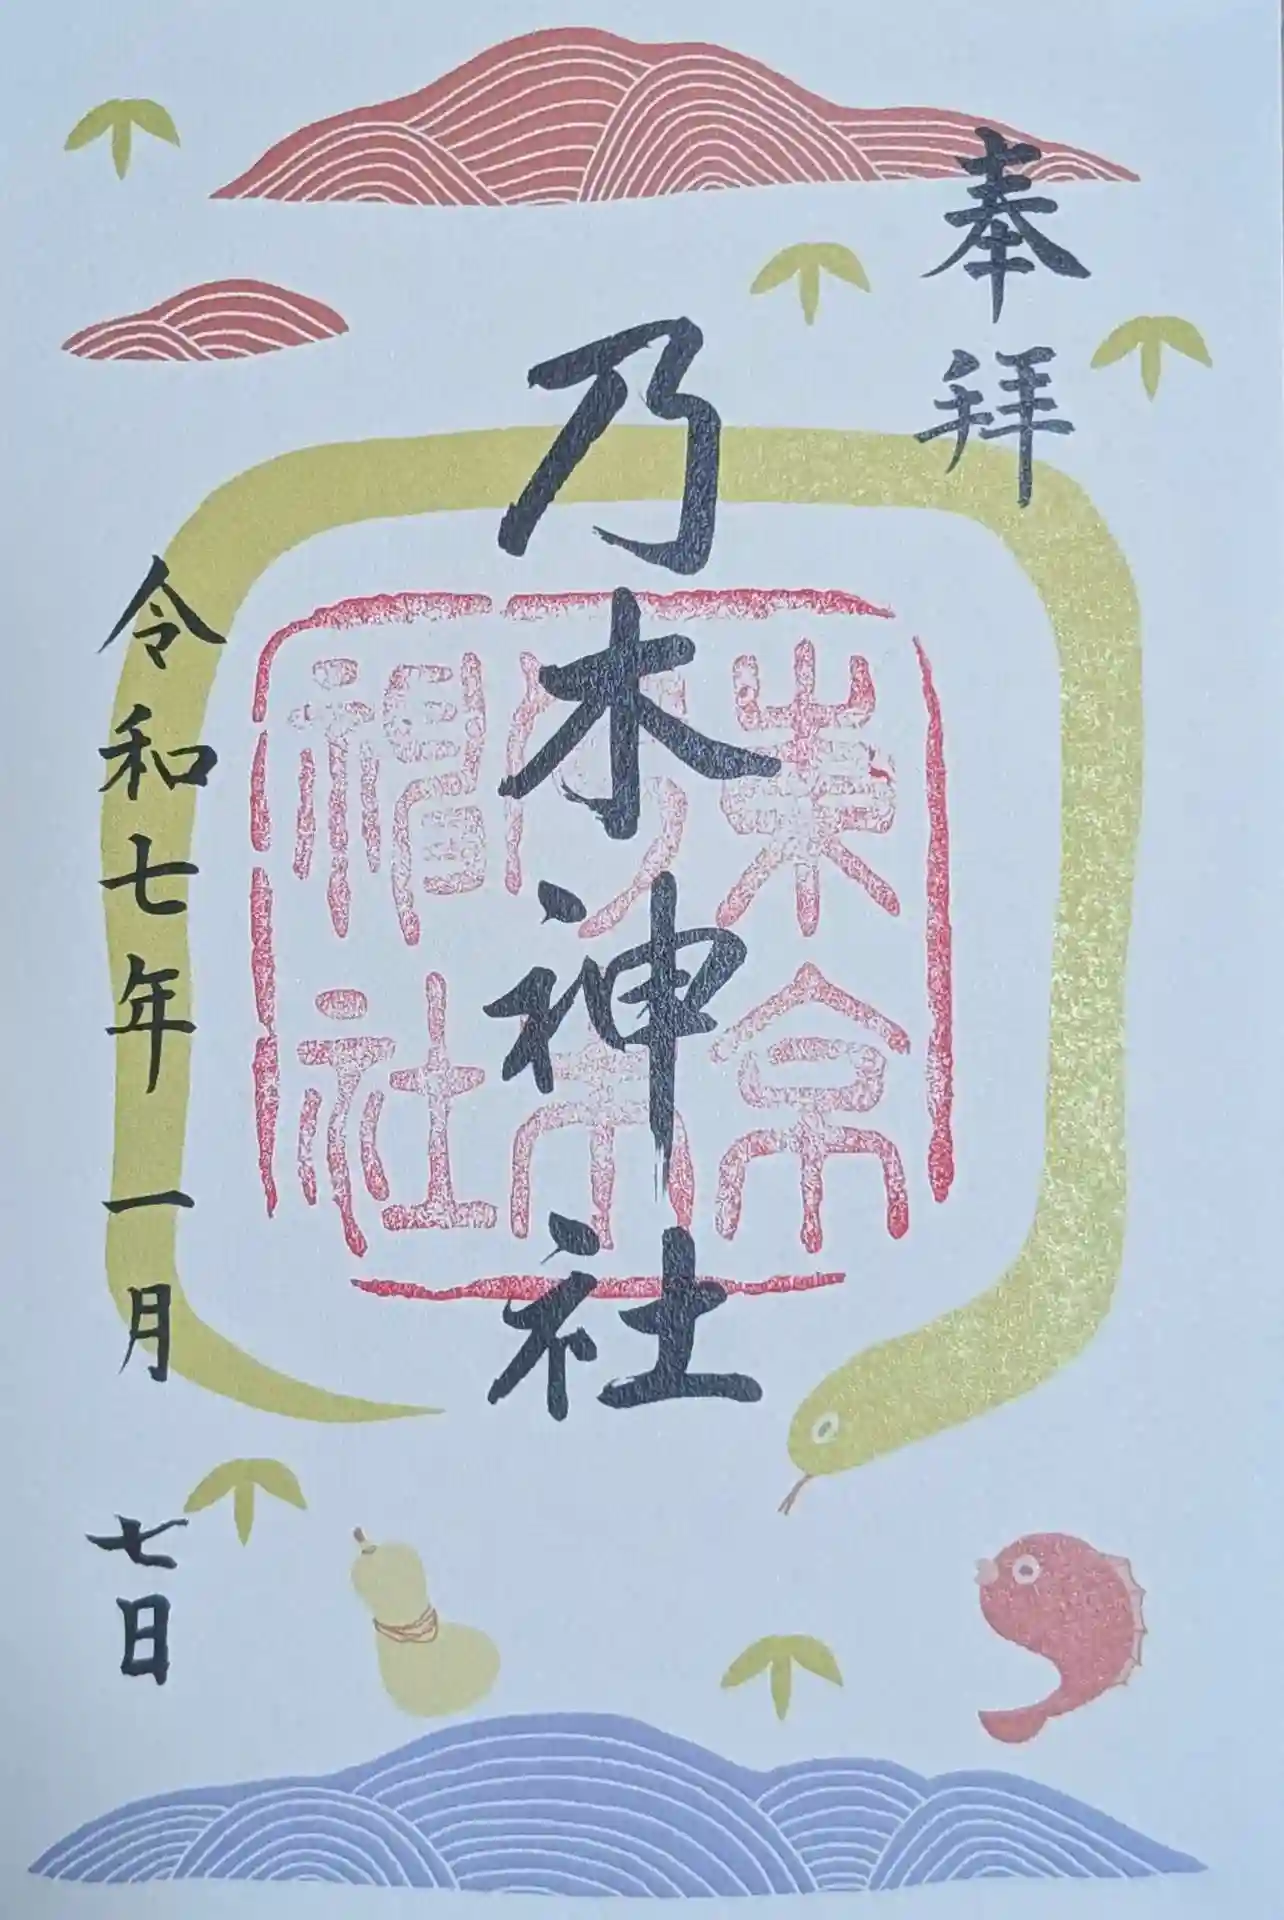 奉拝
乃木神社
東京
乃木
神社
令和七年一月七日